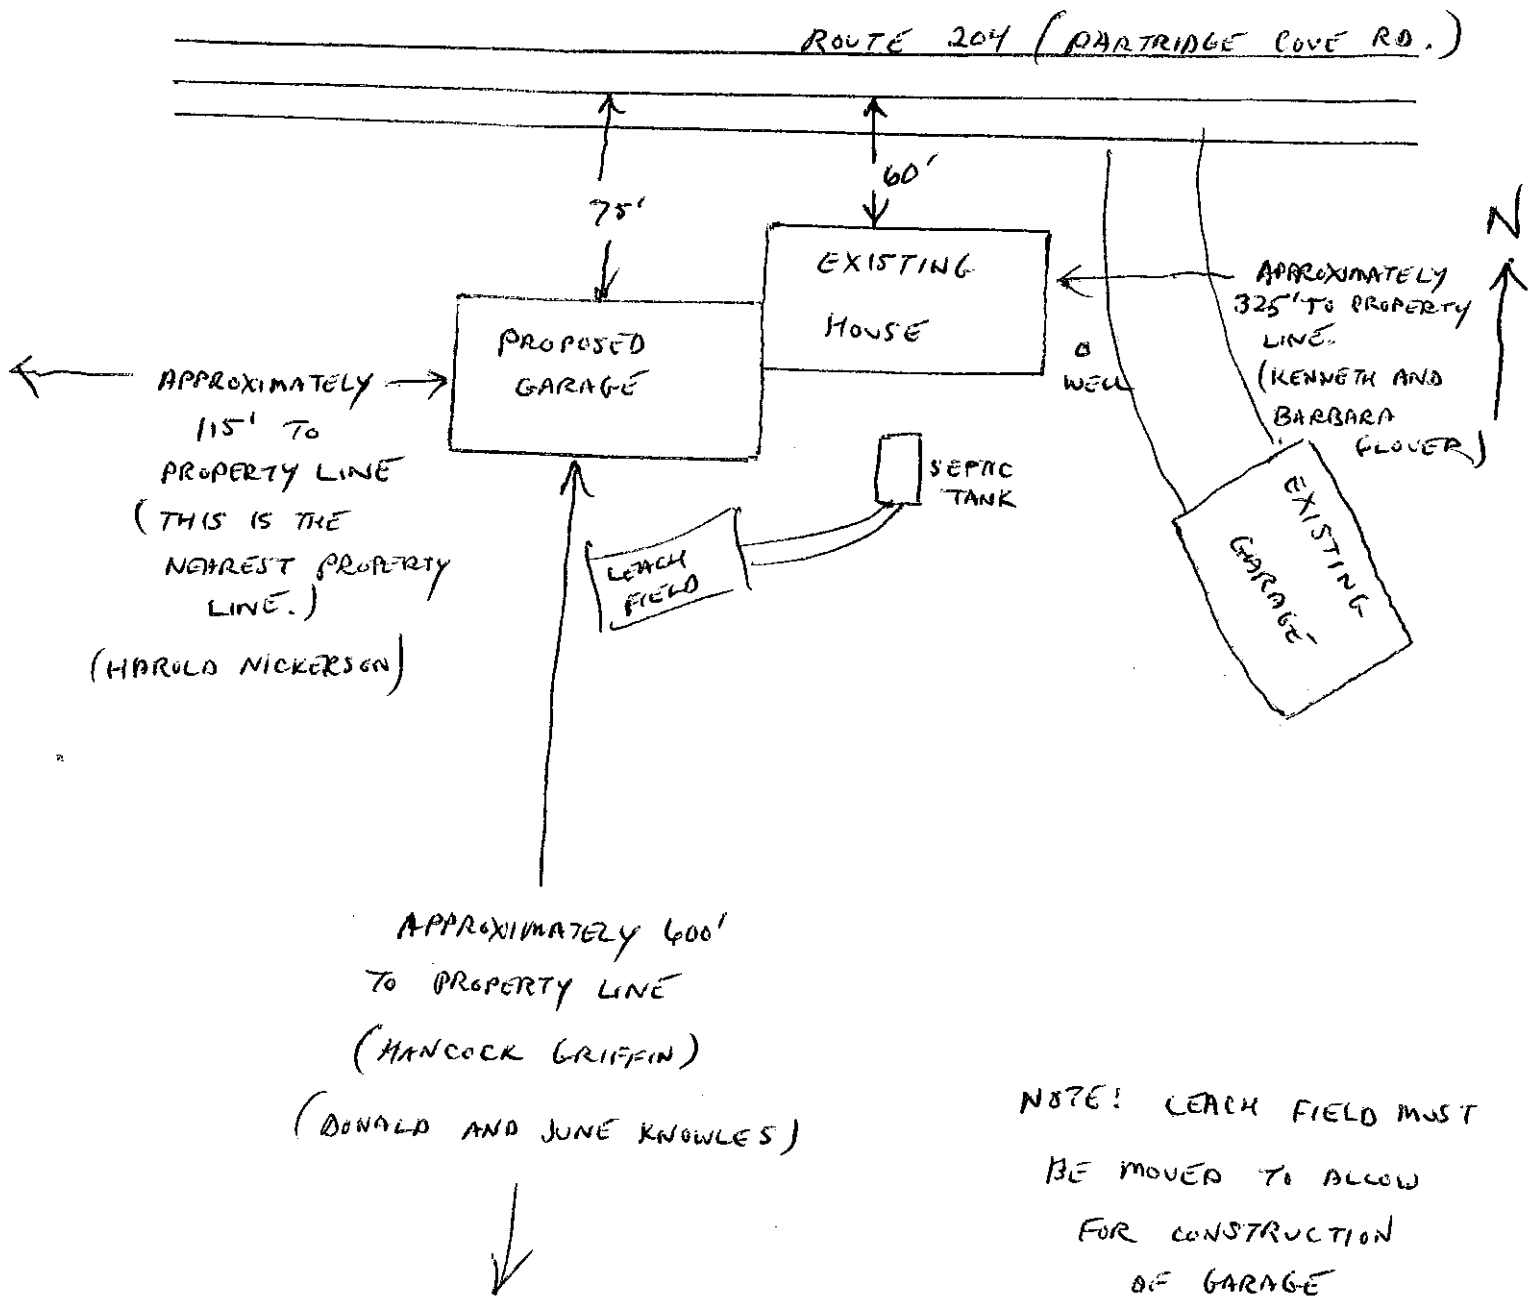 ROUTE 204 (PARTRIDGE COVE RD.)
75'
60'
N
EXISTING
HOUSE
APPROXIMATELY
325' TO PROPERTY
LINE.
(KENNETH AND
BARBARA
GLOVER)
PROPOSED
GARAGE
WELL
APPROXIMATELY
115' TO
PROPERTY LINE
(THIS IS THE
NEAREST PROPERTY
LINE.)
(HAROLD NICKERSON)
SEPTIC
TANK
LEACH
FIELD
EXISTING
GARAGE
APPROXIMATELY 600'
TO PROPERTY LINE
(HANCOCK GRIFFIN)
(DONALD AND JUNE KNOWLES)
NOTE! LEACH FIELD MUST
BE MOVED TO ALLOW
FOR CONSTRUCTION
OF GARAGE